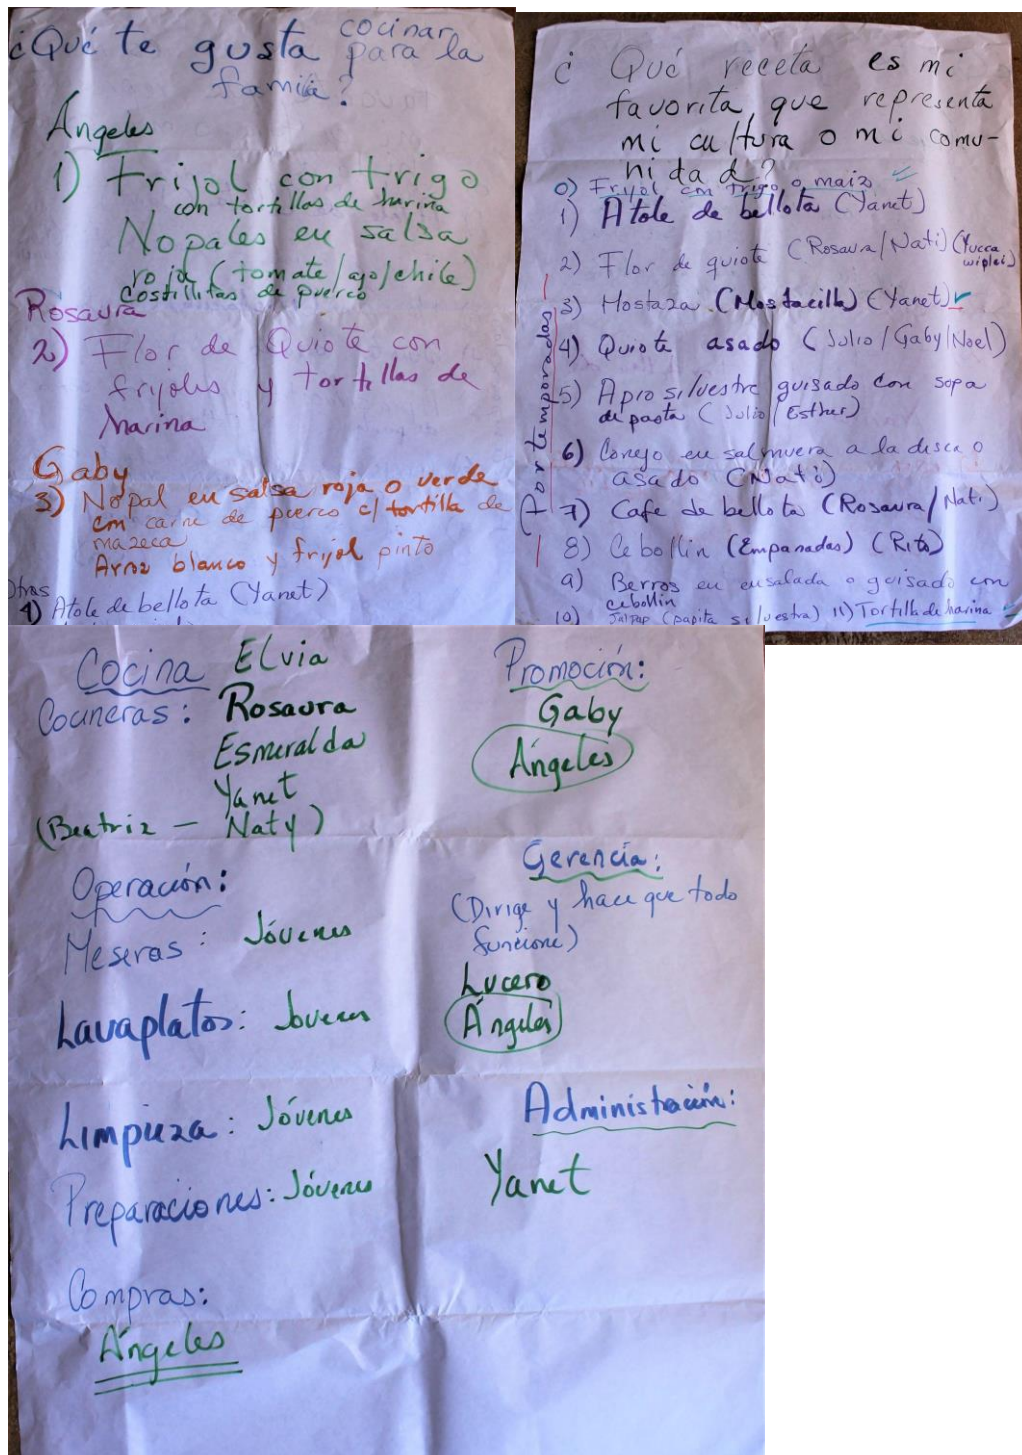 ¿Qué te gusta cocinar
para la
familia?
Ángeles
1) Frijol con trigo
con tortillas de harina
Nopales en salsa
roja (tomate/ajo/chile)
costillitas de puerco
Rosaura
2) Flor de Quiote con
frijoles y tortillas de
harina
Gaby
3) Nopal en salsa roja o verde
con carne de puerco c/ tortilla de
mazeca
Arroz blanco y frijol pinto
Otras
1) Atole de bellota (Yanet)
¿Qué receta es mi
favorita que representa
mi cultura o mi comu-
nidad?
0) Frijol con trigo o maiz
1) Atole de bellota (Yanet)
2) Flor de quiote (Rosaura/Nati) (Yucca
wiplei)
3) Mostaza (Mostacilla) (Yanet)
4) Quiote asado (Julio/Gaby/Noel)
5) Apio silvestre guisado con sopa
de pasta (Julio/Esther)
6) Conejo en salmuera a la disca o
asado (Nati)
7) Cafe de bellota (Rosaura/Nati)
8) Cebollin (Empanadas) (Rita)
9) Berros en ensalada o guisado con
cebollin
10) (papita silvestra) 11) Tortilla de harina
(Por temporadas)
Cocina
Cocineras: Elvia
Rosaura
Esmeralda
Yanet
(Beatriz - Naty)
Promoción:
Gaby
Ángeles
Operación:
Meseras: Jóvenes
Lavaplatos: Jovenes
Limpieza: Jóvenes
Preparaciones: Jóvenes
Compras:
Ángeles
Gerencía:
(Dirige y hace que todo
funcione)
Lucero
Ángeles
Administración:
Yanet